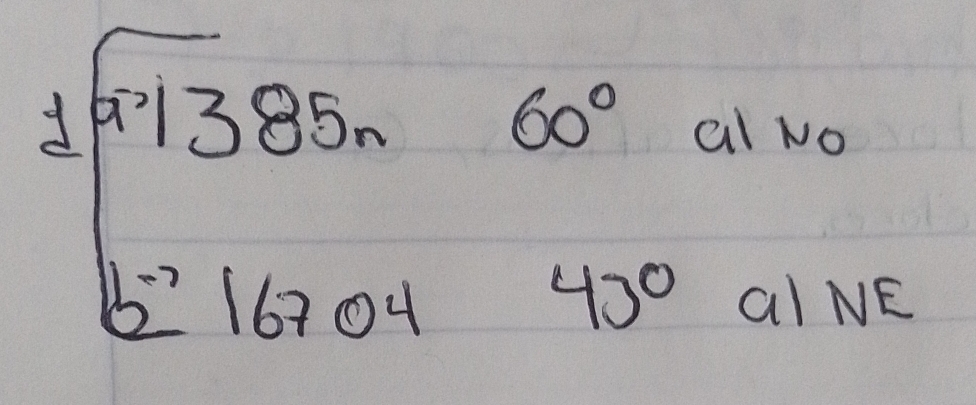 1 a→ 1385n 60° al NO
b→ 16704 43° al NE